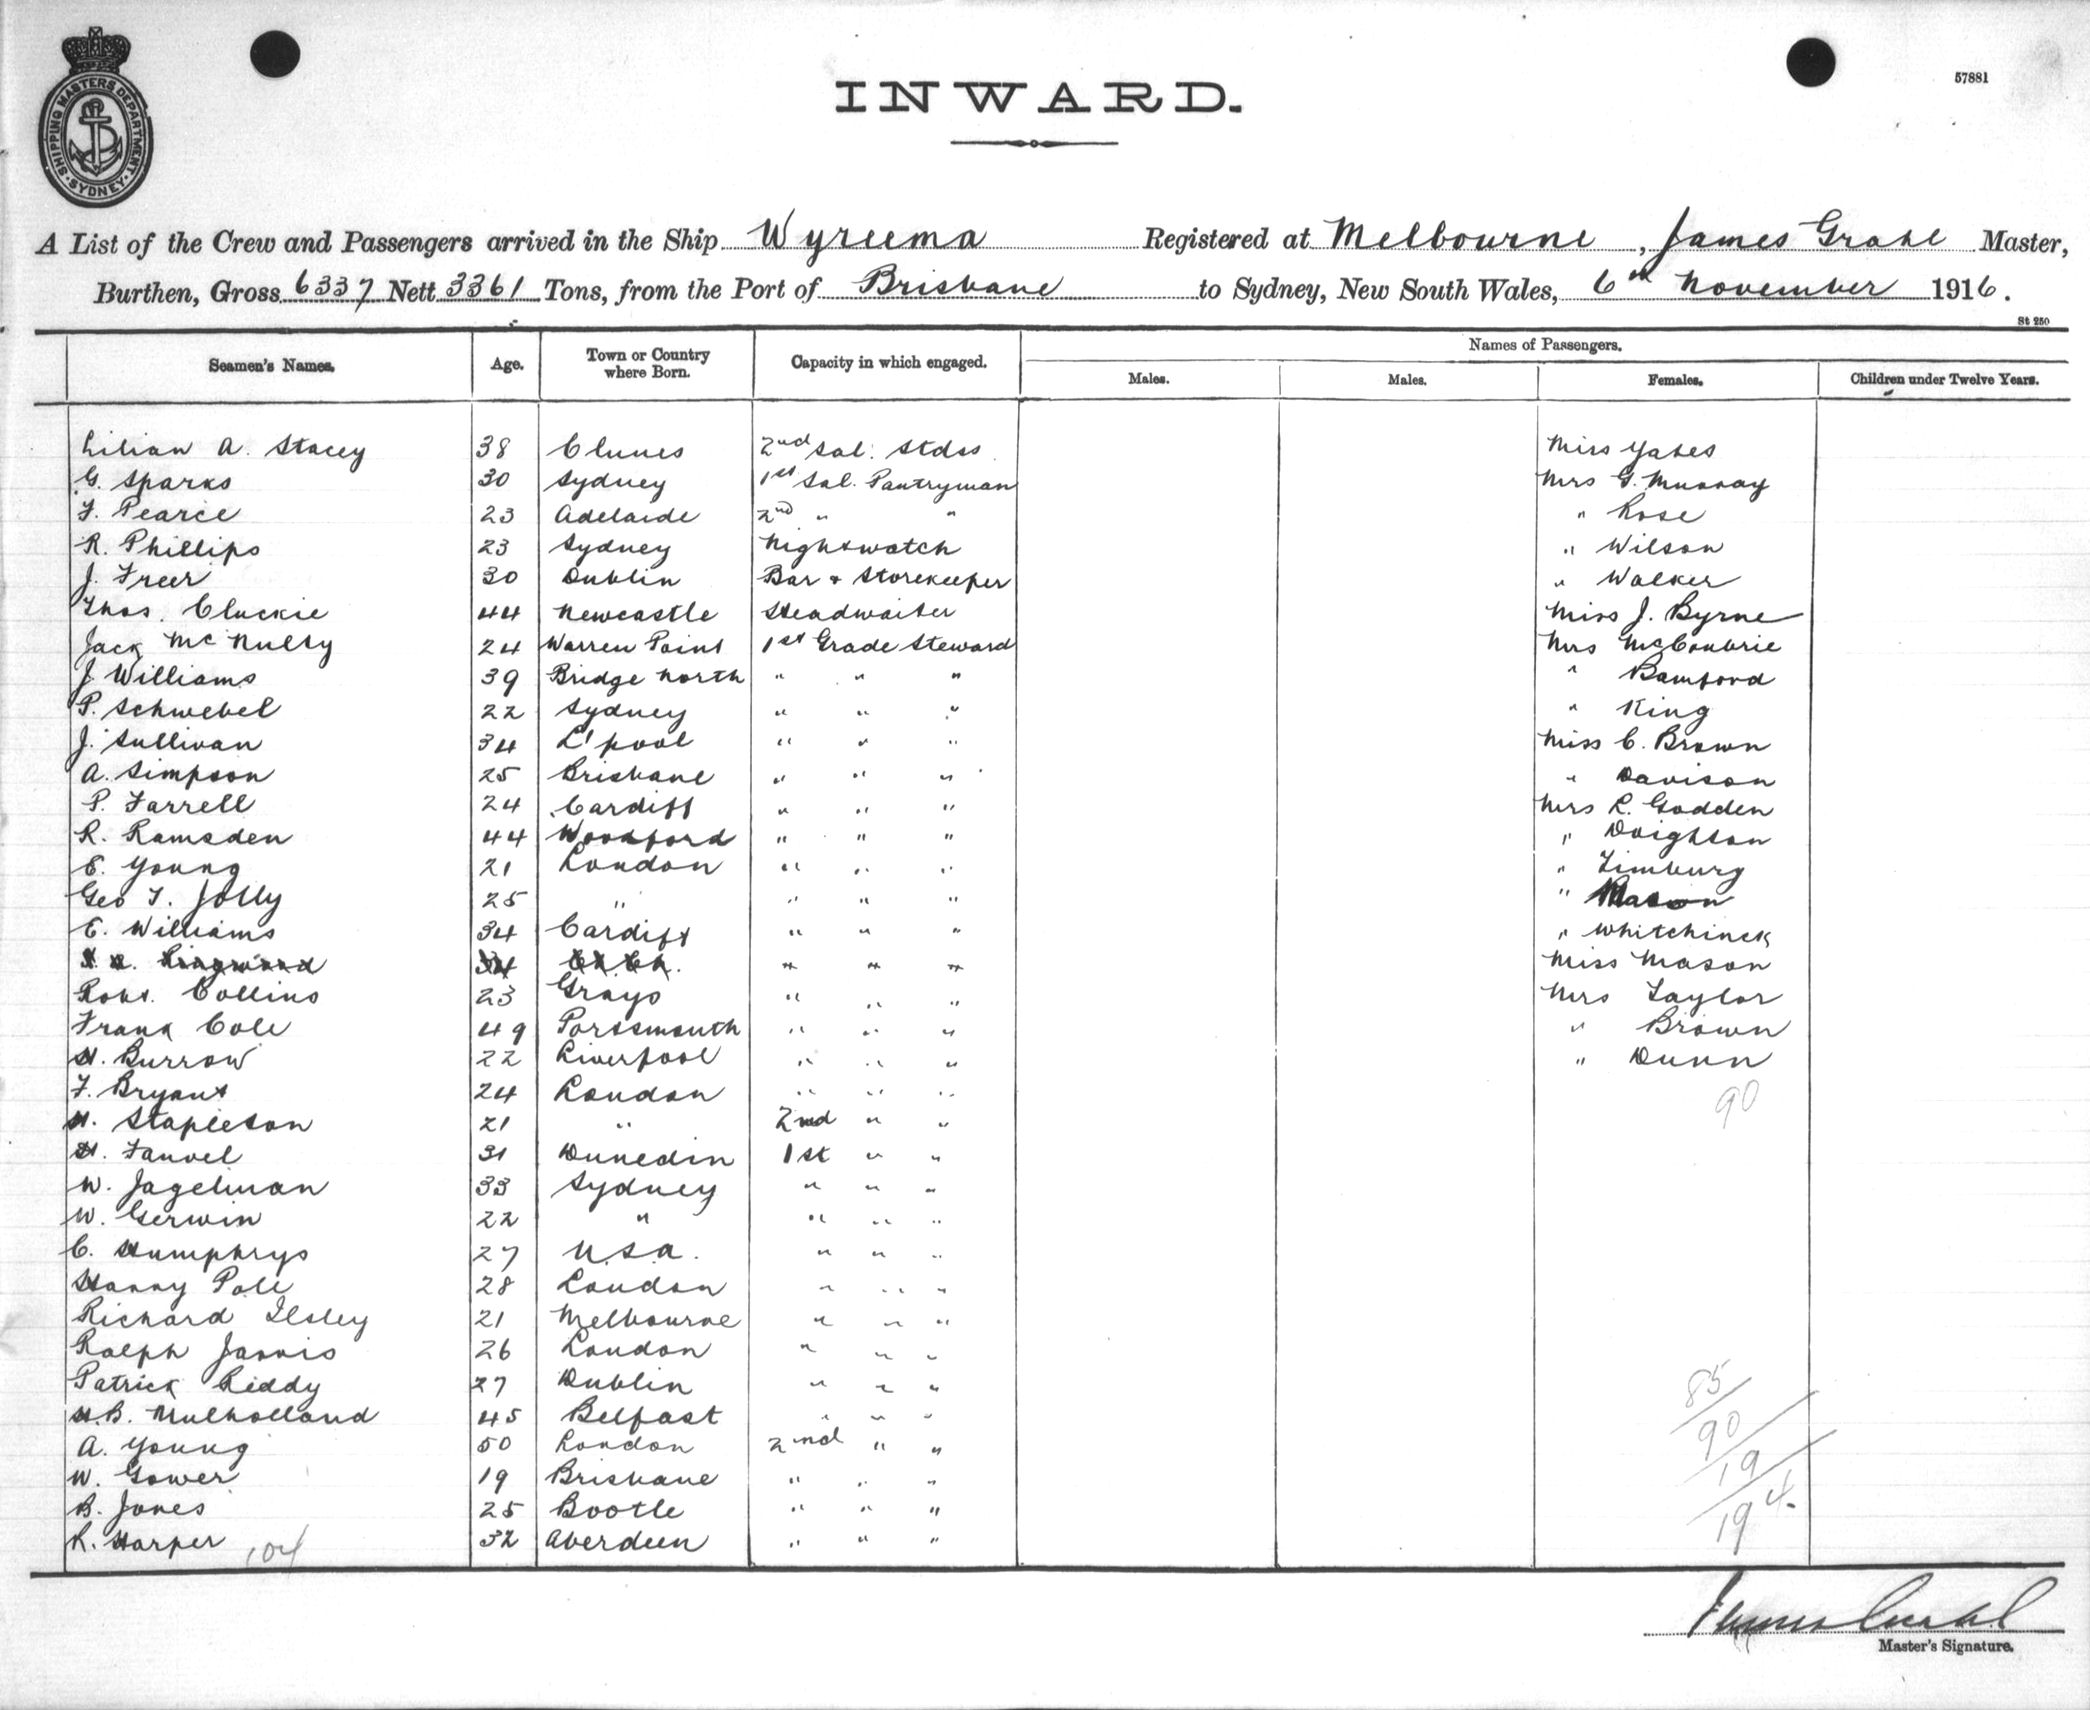 SHIPPING MASTERS DEPARTMENT · SYDNEY ·
57881
INWARD.
A List of the Crew and Passengers arrived in the Ship Wyreema Registered at Melbourne, James Grahl Master,
Burthen, Gross 6337 Nett 3361 Tons, from the Port of Brisbane to Sydney, New South Wales, 6th November 1916.
St 250
Seamen's Names. Age. Town or Country where Born. Capacity in which engaged. Names of Passengers.
Males. Males. Females. Children under Twelve Years.
Lilian A. Stacey 38 Clunes 2nd Sal. Stdss Miss Yates
G. Sparks 30 Sydney 1st Sal. Pantryman Mrs G. Murray
F. Pearce 23 Adelaide 2nd " " " Rose
R. Phillips 23 Sydney Nightwatch " Wilson
J. Freer 30 Dublin Bar & Storekeeper " Walker
Thos. Cluckie 44 Newcastle Headwaiter Miss J. Byrne
Jack McNulty 24 Warren Point 1st Grade Steward Mrs McCoubrie
J. Williams 39 Bridge North " " " " Bamford
P. Schwebel 22 Sydney " " " " King
J. Sullivan 34 L'pool " " " Miss C. Brown
A. Simpson 25 Brisbane " " " " Davison
P. Farrell 24 Cardiff " " " Mrs R. Godden
R. Ramsden 44 Woodford " " " " Deighton
E. Young 21 London " " " " Limburg
Geo F. Jolly 25 " " " " " Mason
E. Williams 34 Cardiff " " " " Whitchinck
Ringwood 34 Ch.Ch. " " " Miss Mason
Robt. Collins 23 Grays " " " Mrs Taylor
Frank Cole 49 Portsmouth " " " " Brown
H. Burrow 22 Liverpool " " " " Dunn
F. Bryant 24 London " " " 90
H. Stapleton 21 " 2nd " "
H. Fauvel 31 Dunedin 1st " "
W. Jagelman 33 Sydney " " "
W. Gerwin 22 " " " "
C. Humphrys 27 U.S.A. " " "
Harry Pole 28 London " " "
Richard Ilsley 21 Melbourne " " "
Ralph Jarvis 26 London " " "
Patrick Liddy 27 Dublin " " " 85
H.B. Mulholland 45 Belfast " " " 90
A. Young 50 London 2nd " " 19
W. Gower 19 Brisbane " " "
B. Jones 25 Bootle " " " 194
R. Harper 104 32 Aberdeen " " "
James Grahl
Master's Signature.